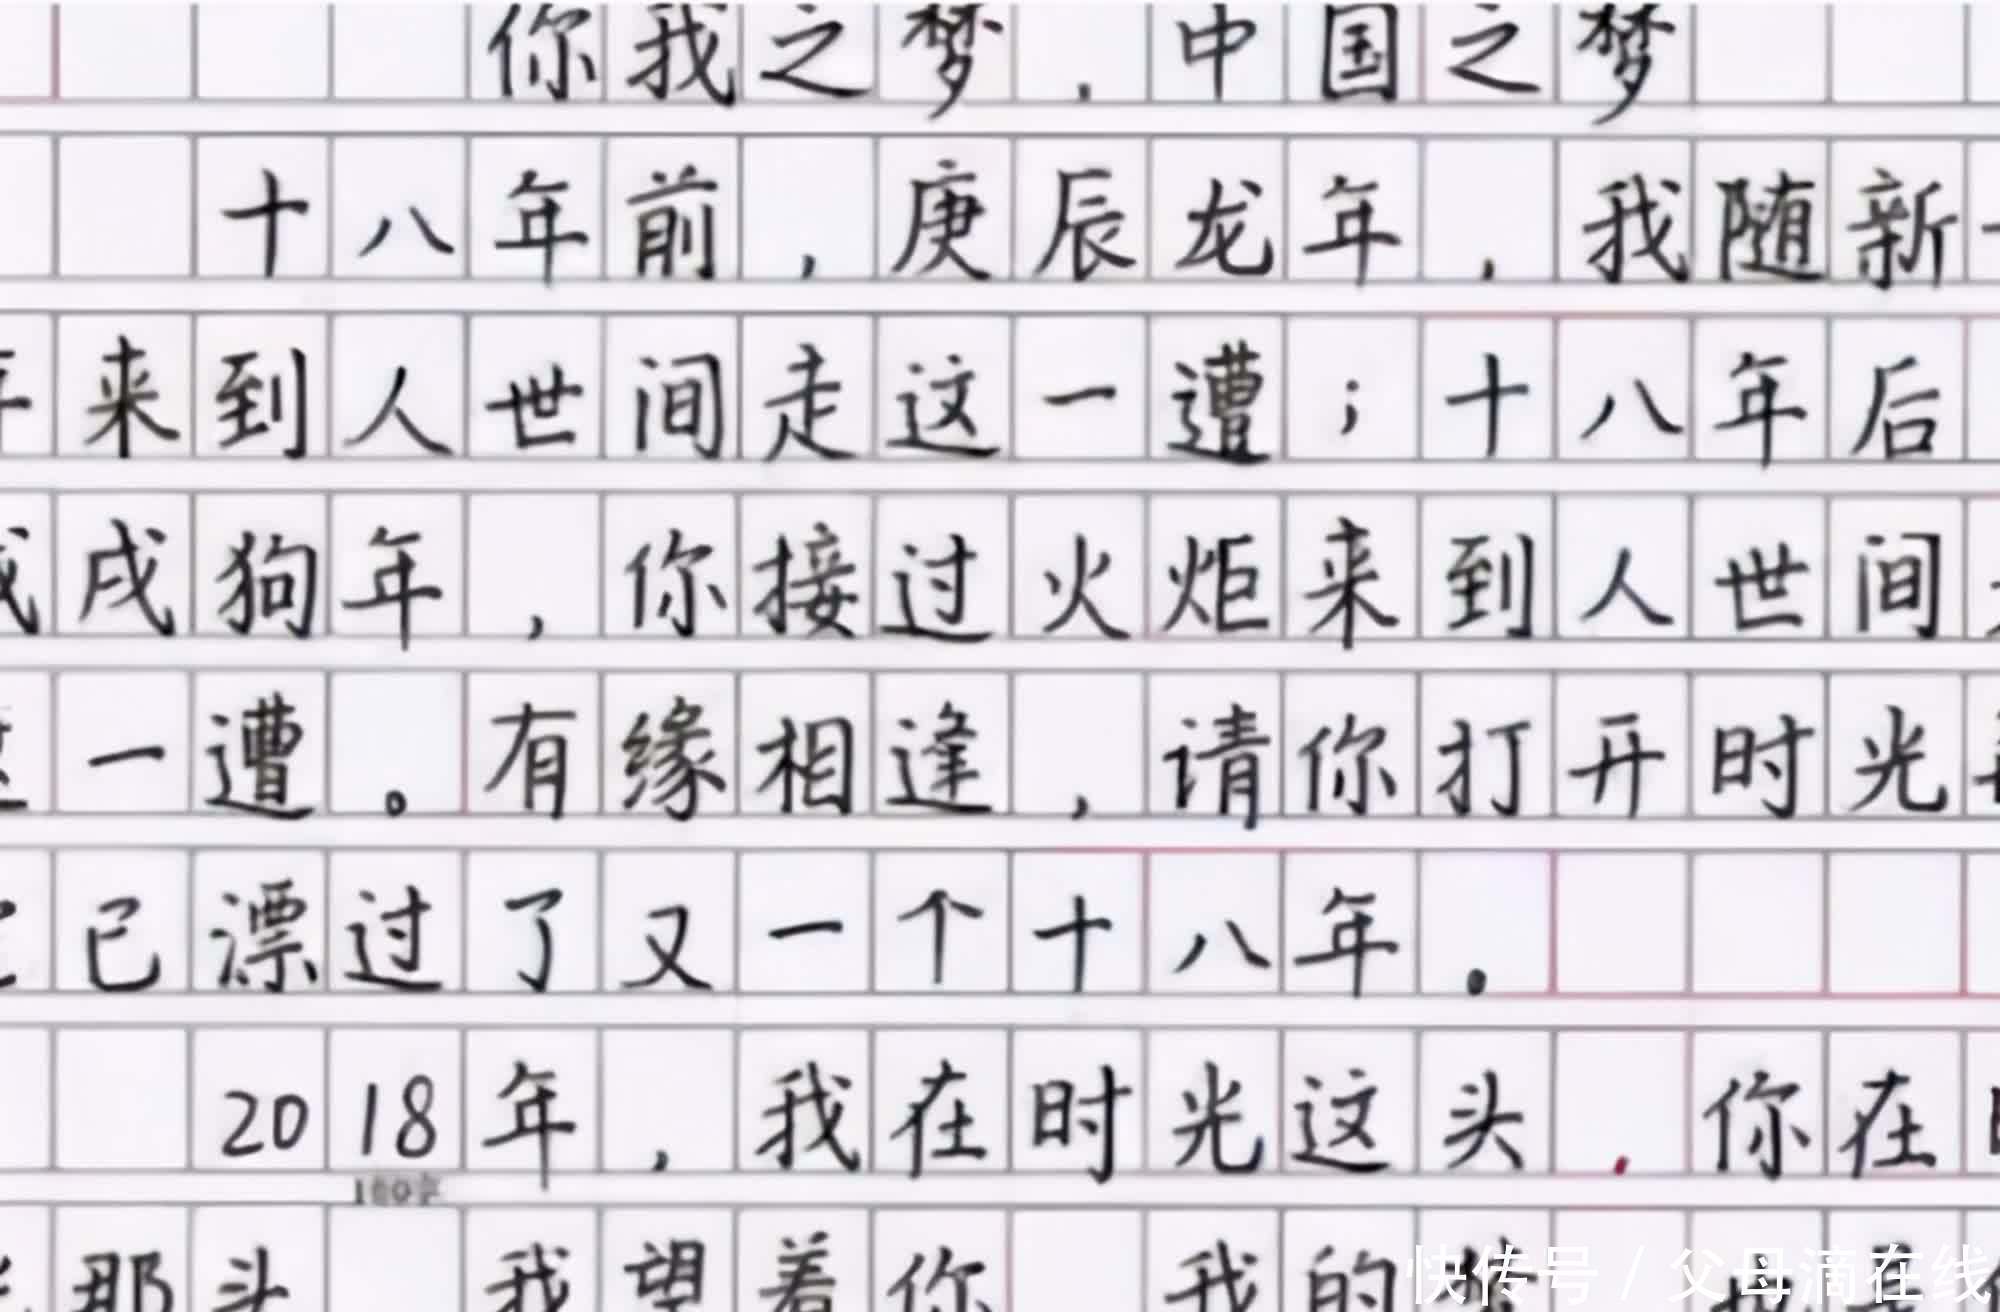 你我之梦，中国之梦
十八年前，庚辰龙年，我随新
来到人世间走这一遭；十八年后
戌狗年，你接过火炬来到人世间
一遭。有缘相逢，请你打开时光
已漂过了又一个十八年。
2018年，我在时光这头，你在
100字
那头 我望着你 我的
快传号 / 父母滴在线